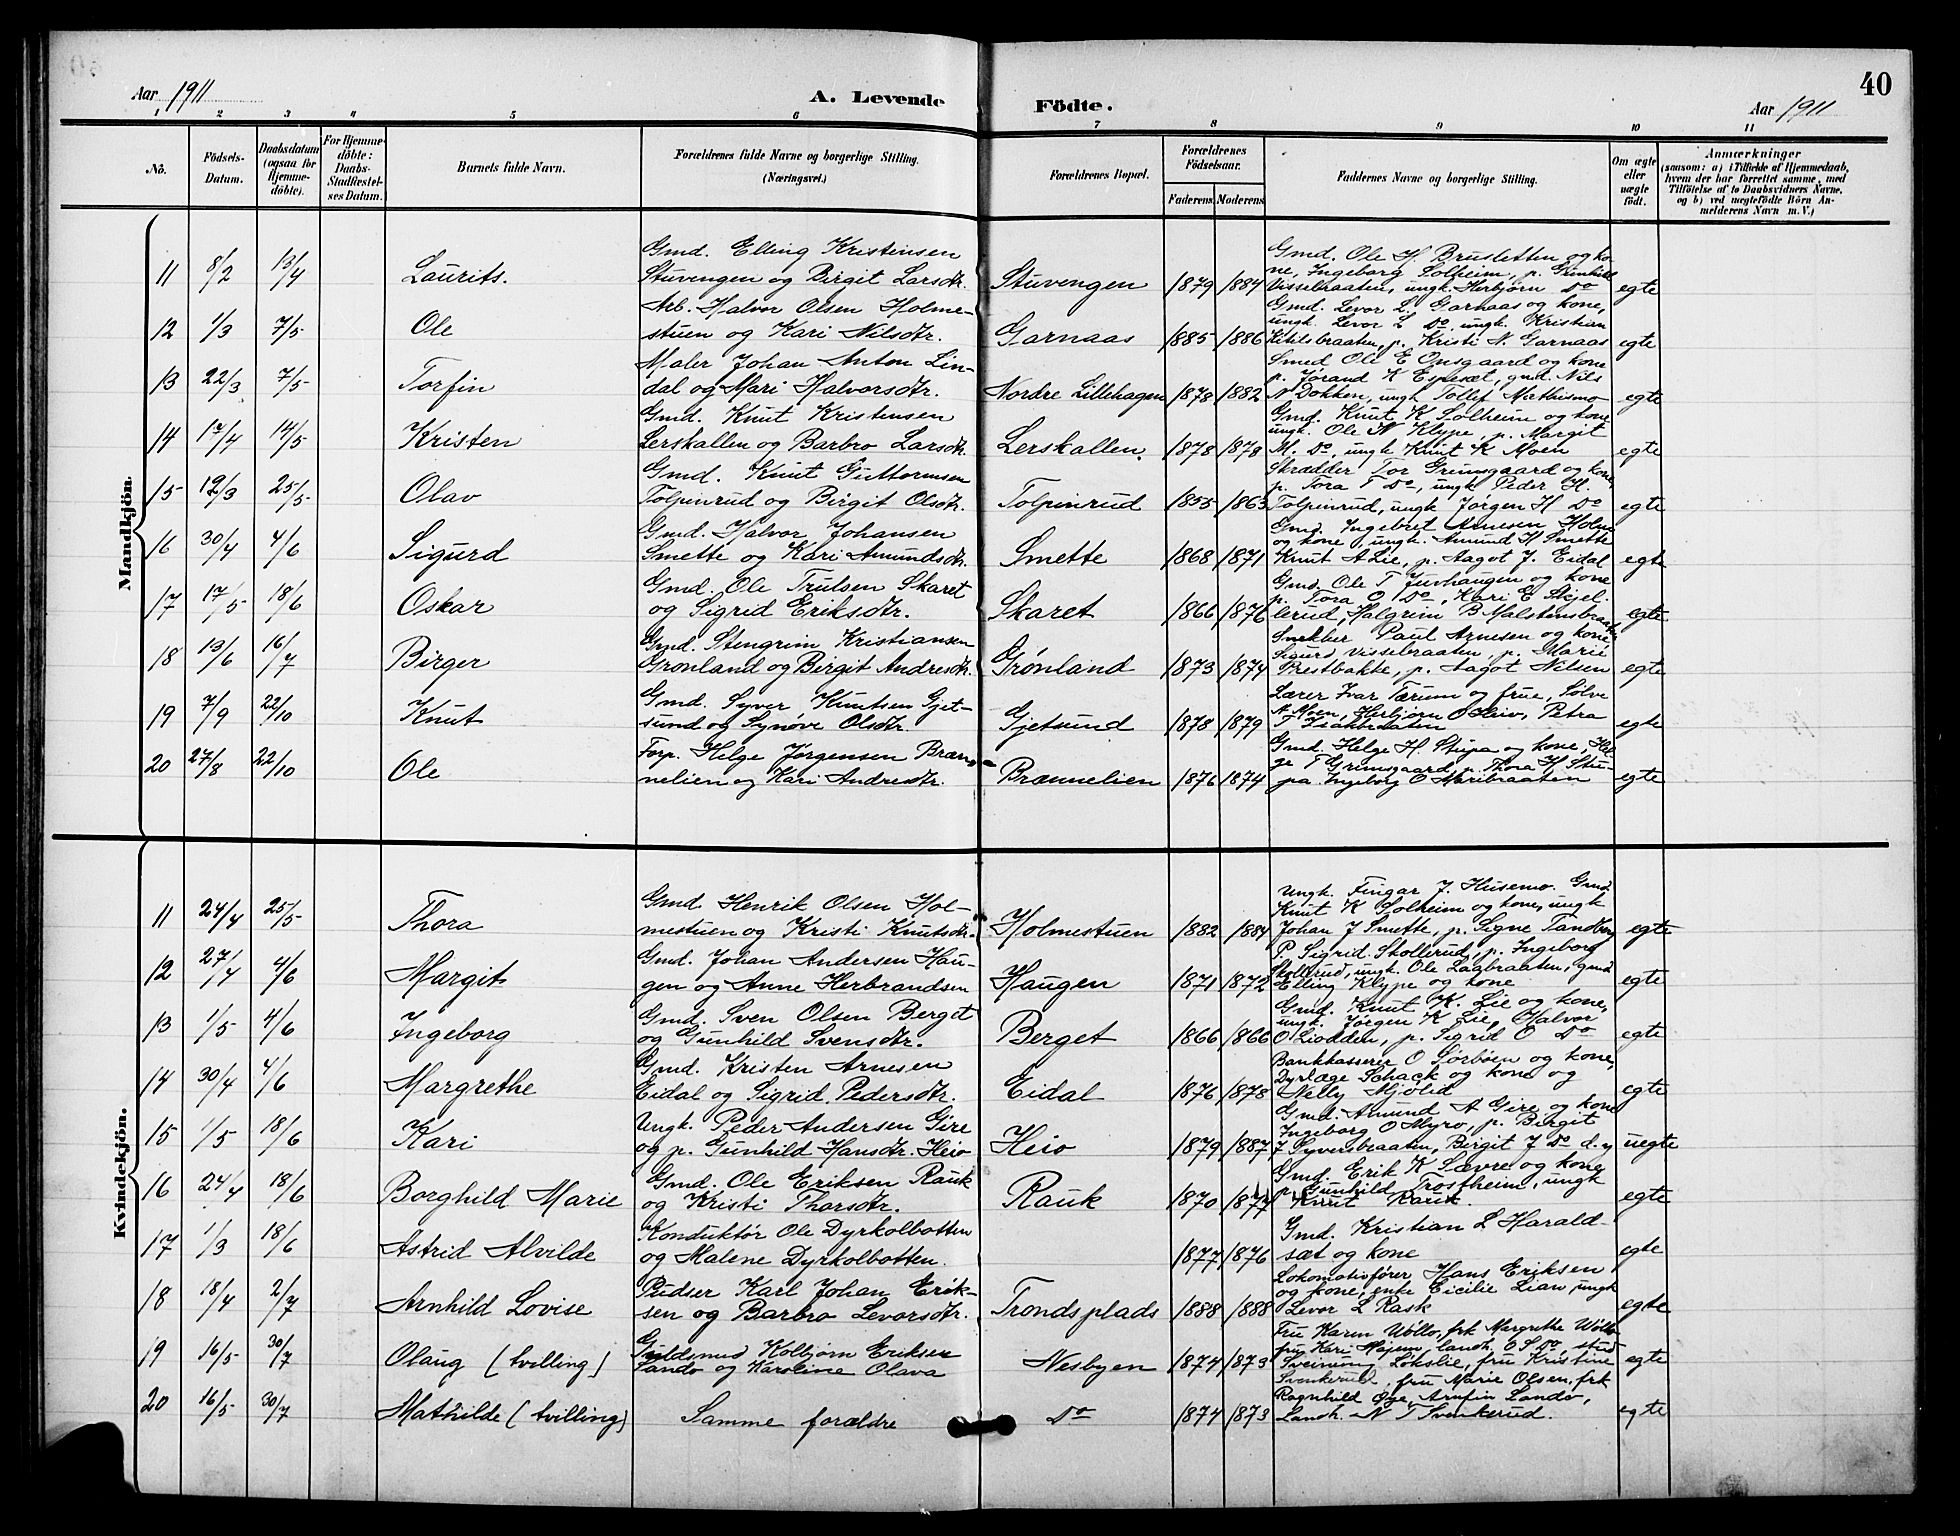 40
Aar 1911
A. Levende Födte.
Aar 1911
1 2 3 4 5 6 7 8 9 10 11
No.
Födsels-Datum.
Daabsdatum (ogsaa for Hjemme-döbte).
For Hjemme-döbte: Daabs-Stadfæstel-ses Datum.
Barnets fulde Navn.
Forældrenes fulde Navne og borgerlige Stilling. (Næringsvei.)
Forældrenes Bopæl.
Forældrenes Födselsaar.
Faderens Moderens
Faddernes Navne og borgerlige Stilling.
Om ægte eller uægte födt.
Anmærkninger
(saasom: a) i Tilfælde af Hjemmedaab,
hvem der har forrettet samme, med
Tilföielse af to Daabsvidners Navne,
og b) ved uægtefödte Börn An-
melderens Navn m. V.)
Mandkjön.
Gmd. Elling Kristensen
11 8/2 13/4 Laurits. Stuvengen og Birgit Larsdtr. Stuvengen 1879 1884 egte
Gmd. Ole H Brusletten og ko-
ne, Ingeborg Solheim, p. Gunhild
Visselbraaten, ungk. Herbjørn Do
Arb. Halvor Olsen Holme-
12 1/3 7/5 Ole stuen og Kari Nilsdtr. Garnaas 1885 1886 egte
Gmd. Levor L. Garnaas og kone,
ungk. Levor L Do, ungk. Kristian
Ketilsbraaten, p. Kristi N. Garnaas
Maler Johan Anton Lin-
13 22/3 7/5 Torfin dal og Mari Halvorsdtr. Nordre Lillehagen 1878 1882 egte
Smed Ole E Onsgaard og kone
p. Jørand K Espeset, gmd. Nils
N Dokken, ungk Tollef Mathismo
Gmd. Knut Kristensen
14 17/4 14/5 Kristen Lerskallen og Barbro Larsdtr. Lerskallen. 1878 1878 egte
Gmd. Knut K Solheim og kone
ungk. Ole N Klype, p. Margit
M. Do, ungk Knut K Moen
Gmd. Knut Guttormsen
15 12/3 25/5 Olav Tolpinrud og Birgit Olsdtr. Tolpinrud 1855 1863 egte
Skrædder Tor Grimsgaard og kone,
p. Tora T Do, ungk Peder H.
Tolpinrud, ungk Jørgen H Do
Gmd. Halvor Johansen
16 30/4 4/6 Sigurd Smette og Kari Amundsdtr. Smette 1868 1871 egte
Gmd. Ingebret Arnesen Holm
og kone, ungk. Amund H Smette
Knut A Lie, p. Aagot J. Eidal
Gmd. Ole Trulsen Skaret
17 17/5 18/6 Oskar og Sigrid Eriksdtr. Skaret 1866 1876 egte
Gmd. Ole T Juvhaugen og kone
p. Tora O Do, Kari E Skjel-
lerud, Halgrim B Malstensbraaten
Gmd. Stengrim Kristiansen
18 13/6 16/7 Birger Grønland og Bergit Andresdtr. Grønland 1873 1874 egte
Snekker Paul Arnesen og kone
Sigurd Visselbraaten, p. Marie
Prestbakke, p. Aagot Nilsen
Gmd. Syver Knutsen Gjet-
19 7/9 22/10 Knut sund og Synøve Olsdtr. Gjetsund 1878 1879 egte
Lærer Ivar Tærum og frue, Sølve
N Moen, Herbjørn O Heio, Petra
Forp. Helge Jørgensen Bræn-
20 27/8 22/10 Ole nelien og Kari Andresdtr. Brænnelien 1876 1874 egte
Gmd. Helge H. Stupa og kone, Hel-
ge T Grimsgaard, p. Thora H Stu-
pa. Ingeborg O Maribraaten
Kvindekjön.
Gmd. Henrik Olsen Hol-
11 24/4 25/5 Thora mestuen og Kristi Knutsdtr. Holmestuen 1882 1884 egte
Ungk. Fingar J. Husemo. Gmd
Knut K Solheim og kone, ungk
Johan J Smette, p. Signe Tandberg
Gmd. Johan Andersen Hau-
12 27/4 4/6 Margit gen og Anne Herbrandsen Haugen 1871 1872 egte
P. Sigrid Skollerud, p. Ingeborg
Skollerud, ungk. Ole Lagbraaten, gmd
Elling Klype og kone
Gmd. Sven Olsen Berget
13 1/5 4/6 Ingeborg og Gunhild Svensdtr. Berget 1866 1866 egte
Gmd. Knut K. Lie og kone,
ungk. Jørgen K Lie, Halvor
O Liodden, p. Sigrid O Do
Gmd. Kristen Arnesen
14 30/4 4/6 Margrethe Eidal og Sigrid Pedersdtr. Eidal 1876 1878 egte
Bankkasserer O Sørbøen og kone,
Dyrlæge Schack og kone og
Nelly Mjølid
Ungk. Peder Andersen Gire
15 1/5 18/6 Kari og p. Gunhild Hansdtr. Heio Heio 1879 1887 uegte
Gmd. Amund A Gire og kone
Ingeborg O Myro, p. Birgit
J Syversbraaten, Birgit J Do d. y
Gmd. Ole Eriksen Rauk
16 24/4 18/6 Borghild Marie og Kristi Thorsdtr. Rauk 1870 1877 egte
Gmd. Erik K Sævre og kone
p. Gunhild Trostheim, ungk
Knut Rauk.
Konduktør Ole Dyrkolbotten
17 1/3 18/6 Astrid Alvilde og Malene Dyrkolbotten. 1877 1876 egte
Gmd. Kristian L Harald-
sæt og kone
Pudser Karl Johan Erik-
18 18/4 2/7 Arnhild Lovise sen og Barbro Levorsdtr. Trondsplads 1888 1888 egte
Lokomotivfører Hans Eriksen
og kone, enke Cicilie Lian, ungk
Levor L Rask
Guldsmed Kolbjørn Eriksen
19 16/5 30/7 Olaug (tvilling) Sando og Karoline Olava Nesbyen 1874 1873 egte
Fru Karen Wøllo, frk Margrethe Wøllo
fru Kari Mojem, landh. E S Do, stud
Sveinung Løkslie, fru Kristine
20 16/5 30/7 Mathilde (tvilling) Samme forældre Do 1874 1873 egte
Svenkerud, fru Marie Olsen, frk
Ragnhild Øye, Arnfin Sando,
Landh. N T Svenkerud.